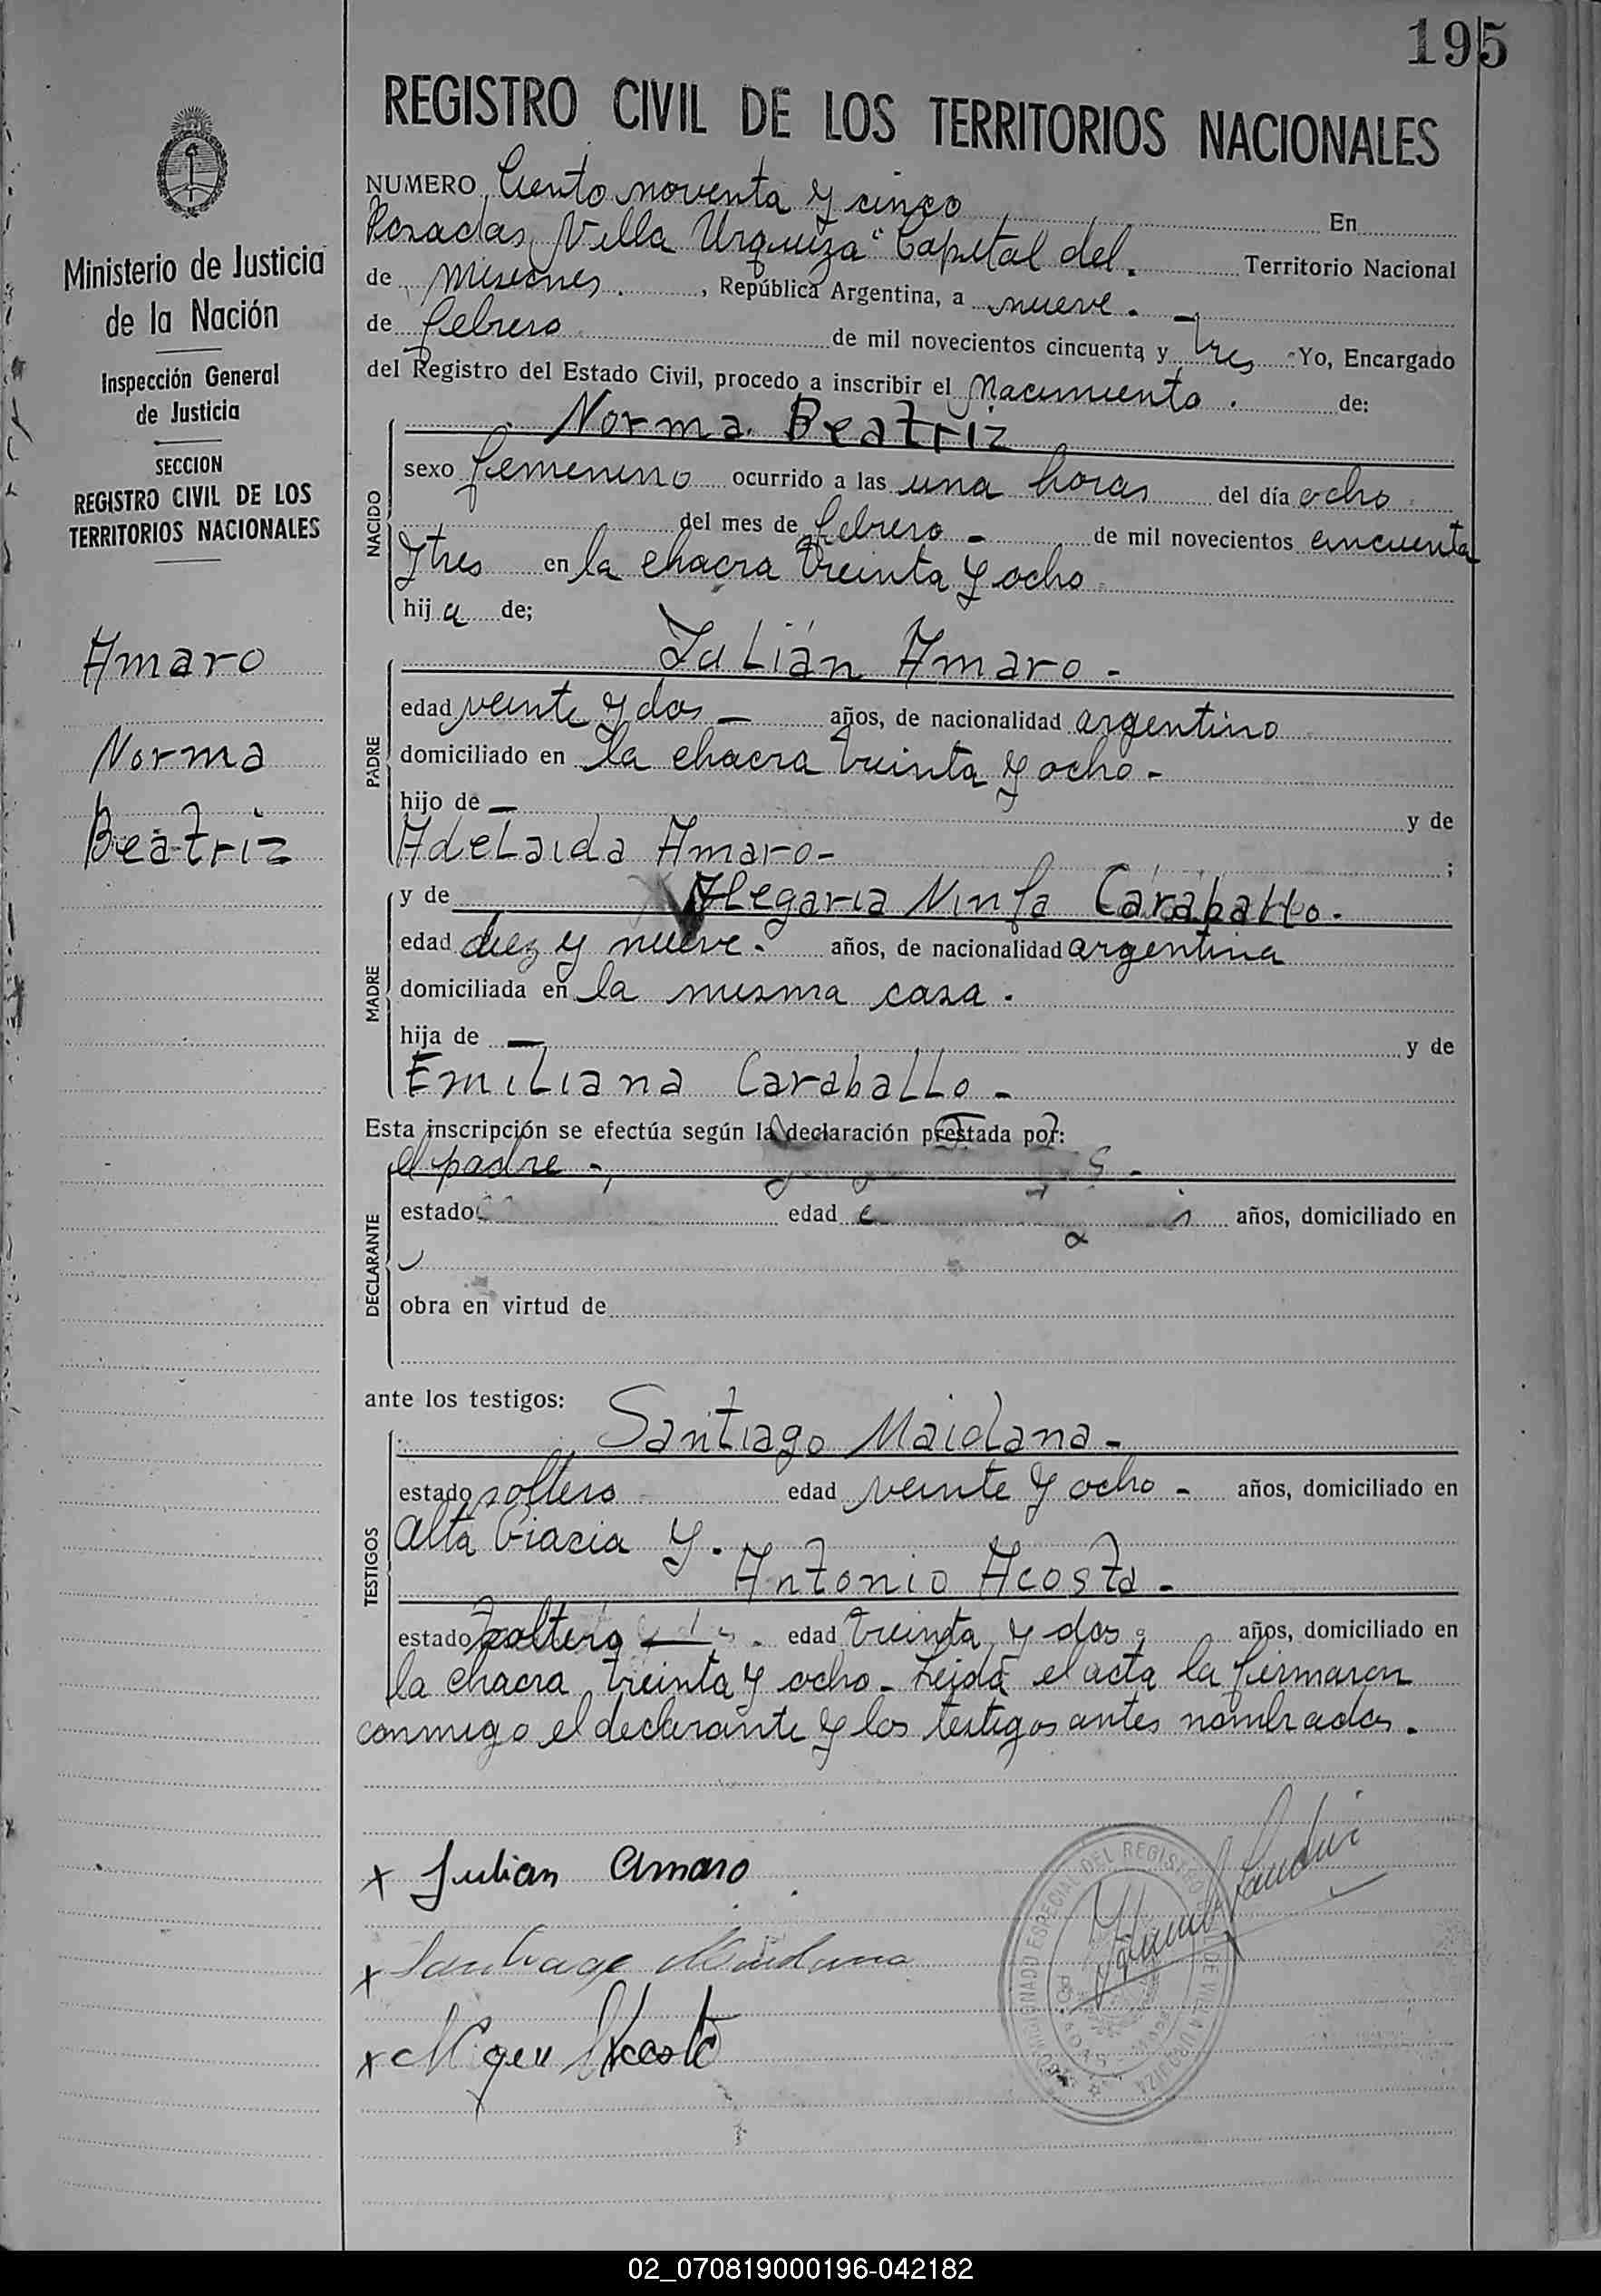 195
REGISTRO CIVIL DE LOS TERRITORIOS NACIONALES
Ministerio de Justicia
de la Nación
Inspección General
de Justicia
SECCION
REGISTRO CIVIL DE LOS
TERRITORIOS NACIONALES
Amaro
Norma
Beatriz
NUMERO Ciento noventa y cinco En
Posadas, Villa Urquiza" Capital del. Territorio Nacional
de Misiones. , República Argentina, a nueve. -
de febrero de mil novecientos cincuenta y tres Yo, Encargado
del Registro del Estado Civil, procedo a inscribir el Nacimiento. de:
NACIDO
Norma Beatriz
sexo femenino ocurrido a las una horas del día ocho
del mes de febrero - de mil novecientos cincuenta
y tres en la chacra treinta y ocho
hija de;
PADRE
Julián Amaro -
edad veinte y dos - años, de nacionalidad argentino
domiciliado en la chacra treinta y ocho -
hijo de - y de
Adelaida Amaro- ;
MADRE
y de Olegaria Ninfa Caraballo.
edad diez y nueve. años, de nacionalidad argentina
domiciliada en la misma casa.
hija de - y de
Emiliana Caraballo -
Esta inscripción se efectúa según la declaración prestada por:
DECLARANTE
el padre -,
estado edad años, domiciliado en
obra en virtud de
ante los testigos:
TESTIGOS
Santiago Maidana -
estado soltero edad veinte y ocho - años, domiciliado en
Alta Gracia y.
Antonio Acosta -
estado soltero edad treinta y dos años, domiciliado en
la chacra treinta y ocho - Leida el acta la firmaron
conmigo el declarante y los testigos antes nombrados.
x Julian Amaro
x Santiago Maidana
x Acosta
DEL REGISTRO
DE VILLA URQUIZA
02_070819000196-042182